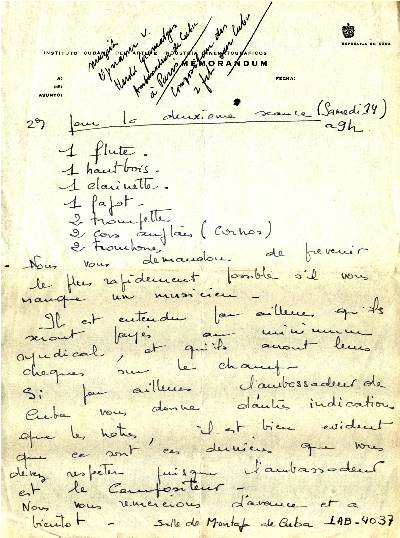 INSTITUTO CUBANO DEL ARTE E INDUSTRIA CINEMATOGRAFICOS
REPUBLICA DE CUBA
MEMORANDUM
A:
DE:
ASUNTO:
FECHA:
musique
Harold Gramatges
Ambassadeur de Cuba
à Paris
2) pour la deuxième séance (Samedi 14)
a 9h.
1 flute.
1 hautbois.
1 clarinette.
1 fagot.
2 trompette
2 cors anglais (Cornos)
2 trombone
Nous vous demandons de prevenir
le plus rapidement possible s'il vous
manque un musicien -
Il est entendu par ailleurs qu'ils
seront payés au minimum
syndical, et qu'ils auront leurs
cheques sur le champ -
Si par ailleurs l'ambassadeur de
Cuba vous donne d'autres indications
que les notres, il est bien evident
que ce sont ces dernières que vous
devez respecter puisque l'ambassadeur
est le Compositeur -
Nous vous remercions d'avance et a
bientot - Salle de Montage de Cuba LAB-4037